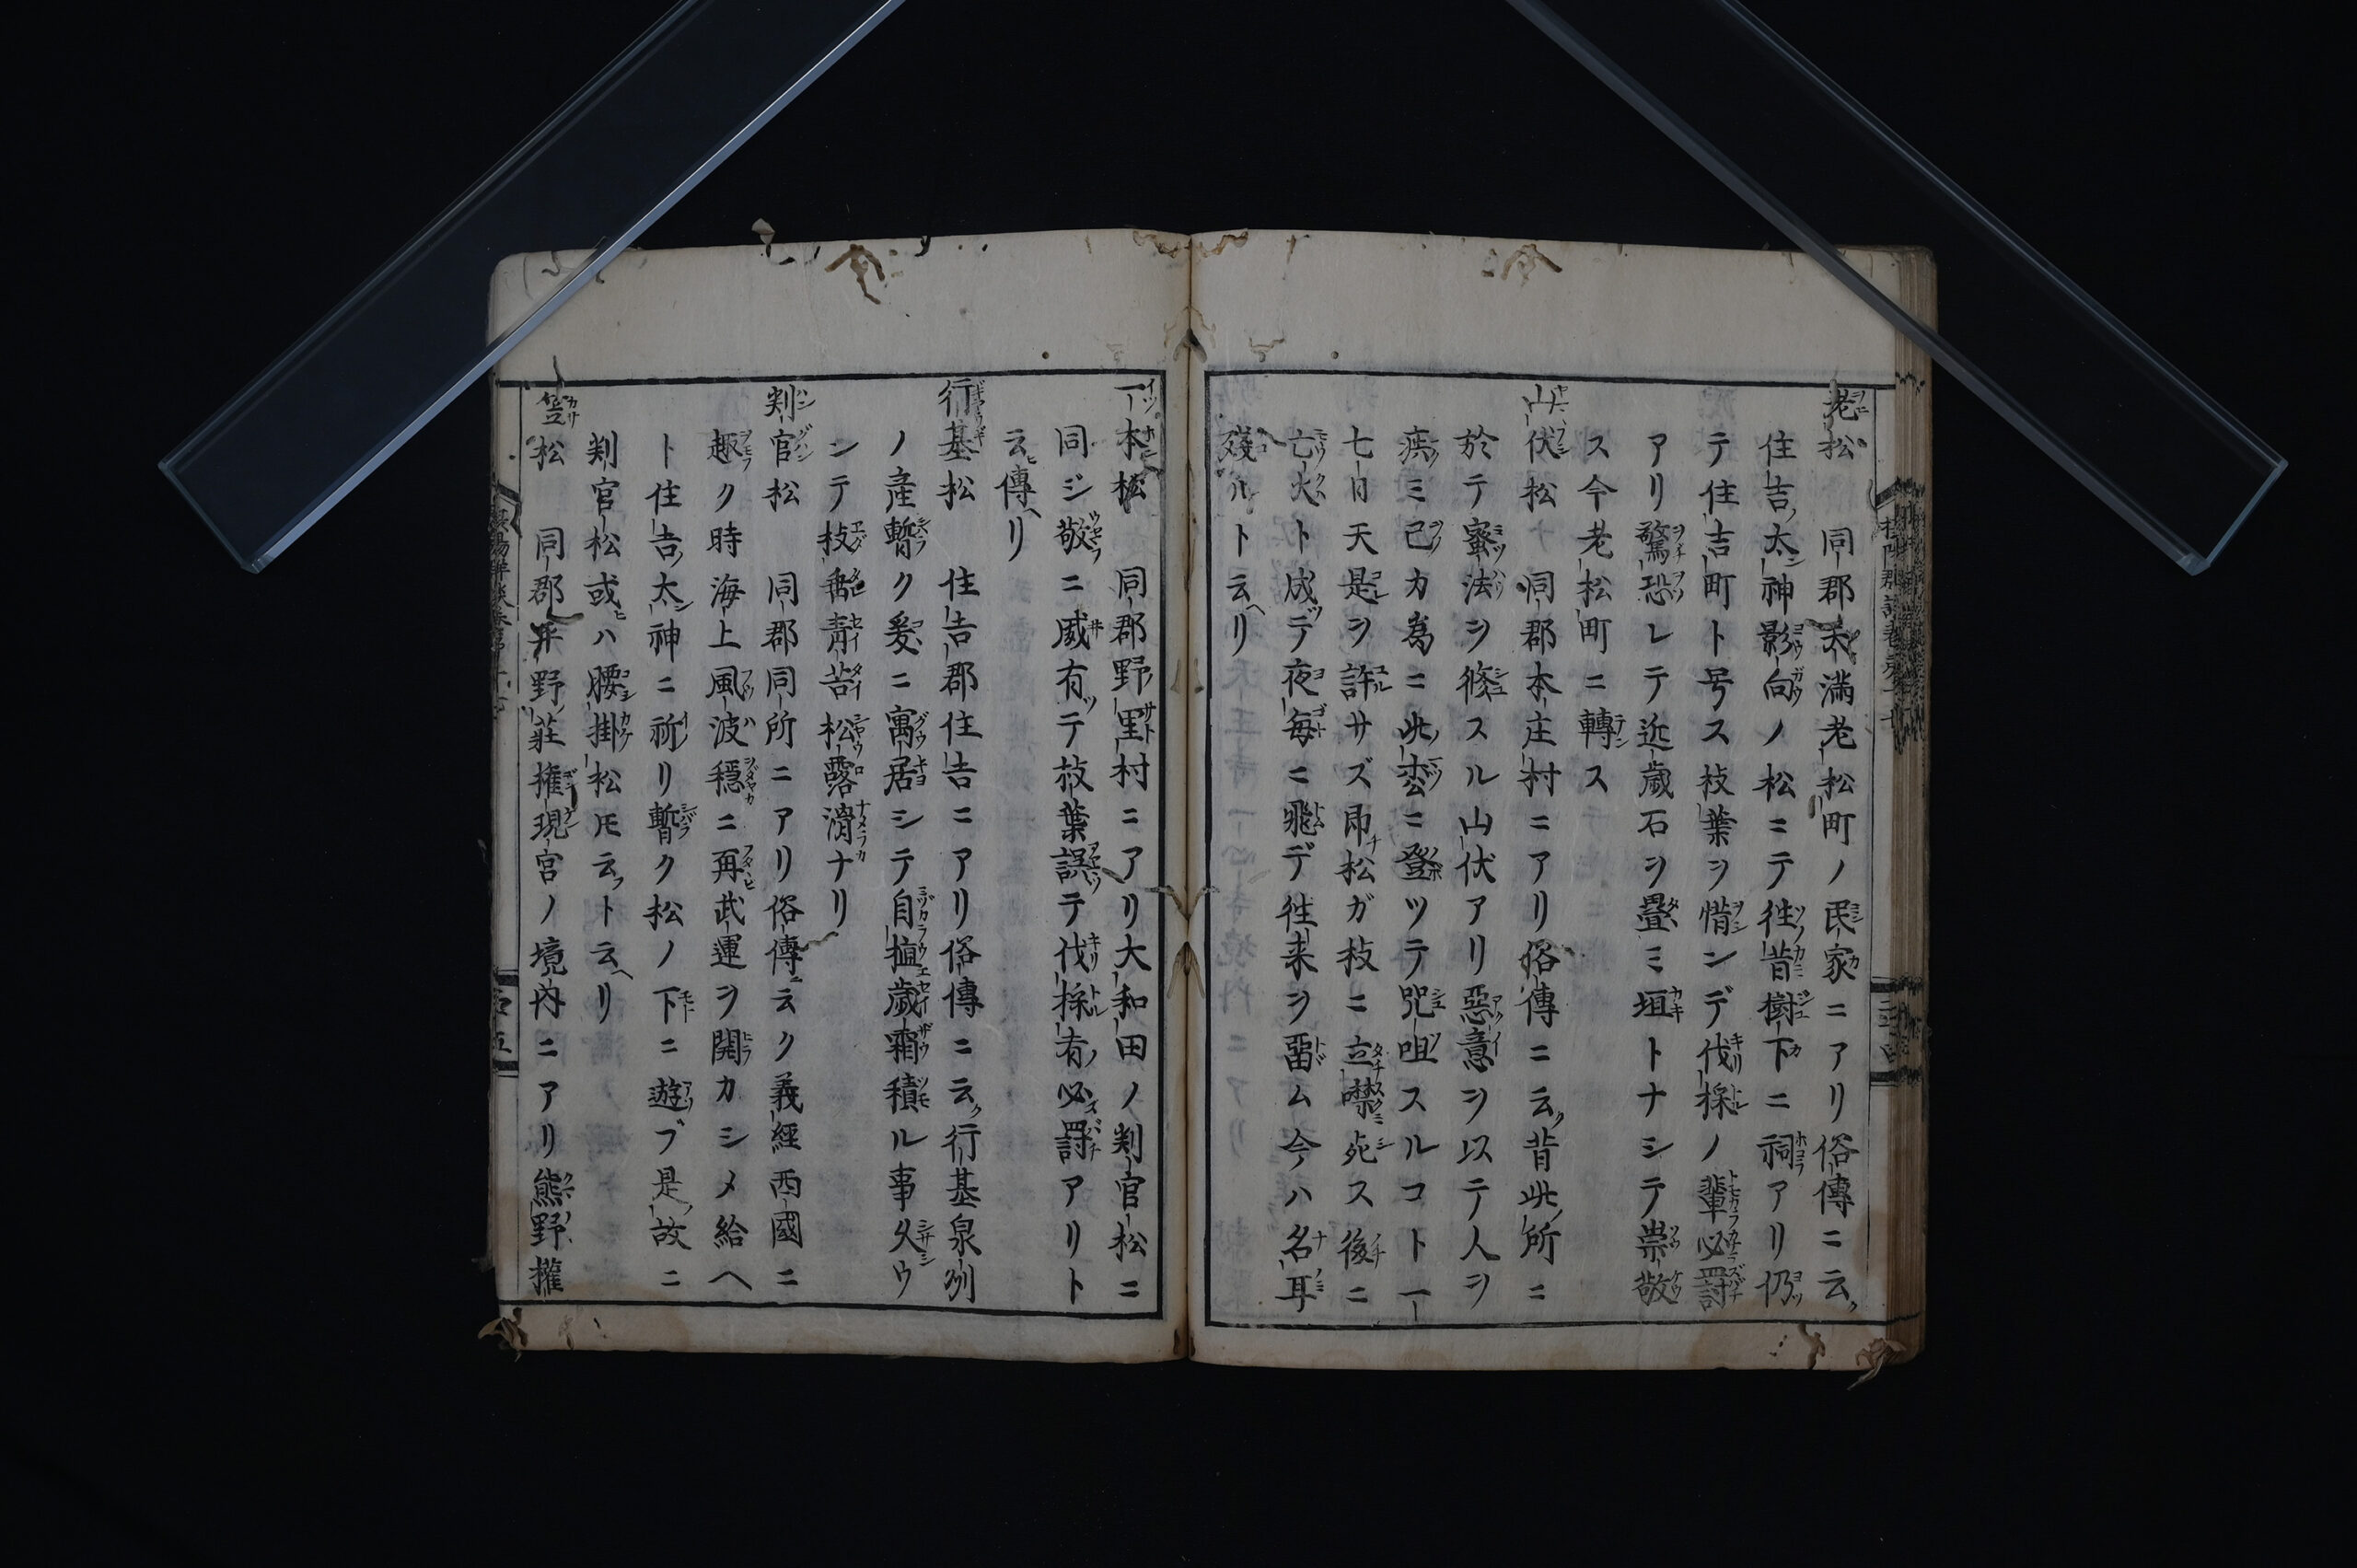 老松　同郡天満老松町ノ民家ニアリ俗傳ニ云
住吉太神影向ノ松ニテ徃昔樹下ニ祠アリ仍
テ住吉町ト号ス枝葉ヲ惜ンデ伐採ノ輩必罸
アリ驚恐レテ近歳石ヲ畳ミ垣トナシテ崇敬
ス今老松町ニ轉ス
山伏松　同郡本庄村ニアリ俗傳ニ云昔此所ニ
於テ蜜法ヲ修スル山伏アリ惡意ヲ以テ人ヲ
疾ミ己カ為ニ此枩ニ登ツテ咒咀スルコト一
七日天是ヲ許サズ即松ガ枝ニ立噤死ス後ニ
亡火ト成テ夜毎ニ飛デ徃来ヲ畱ム今ハ名耳
殘ルト云リ
一本松　同郡野里村ニアリ大和田ノ判官松ニ
同ジ敬ニ威有テ枝葉誤テ伐採者必罸アリト
云傳リ
行基松　住吉郡住吉ニアリ俗傳ニ云行基泉刕
ノ産暫ク爰ニ寓居シテ自植歳霜積ル事久ウ
ンテ枝垂青苔松露滑ナリ
判官松　同郡同所ニアリ俗傳云ク義經西國ニ
趣ク時海上風波穏ニ再武運ヲ開カシメ給ヘ
ト住吉太神ニ祈リ暫ク松ノ下ニ遊ブ是故ニ
判官松或ハ腰掛松トモ云フト云リ
笠松　同郡平野莊權現宮ノ境内ニアリ熊野權